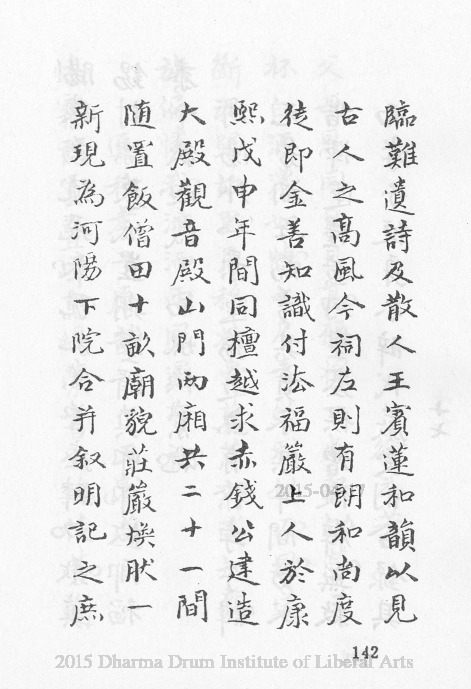 臨難遺詩及散人王賓蓮和韻以見
古人之高風今祠左則有朗和尚度
徒即金善知識付法福嚴上人於康
熙戊申年間同檀越求赤錢公建造
大殿觀音殿山門兩廂共二十一間
随置飯僧田十畝廟貌莊嚴煥肰一
新現為河陽下院合并叙明記之庶
2015-04-17
142
2015 Dharma Drum Institute of Liberal Arts